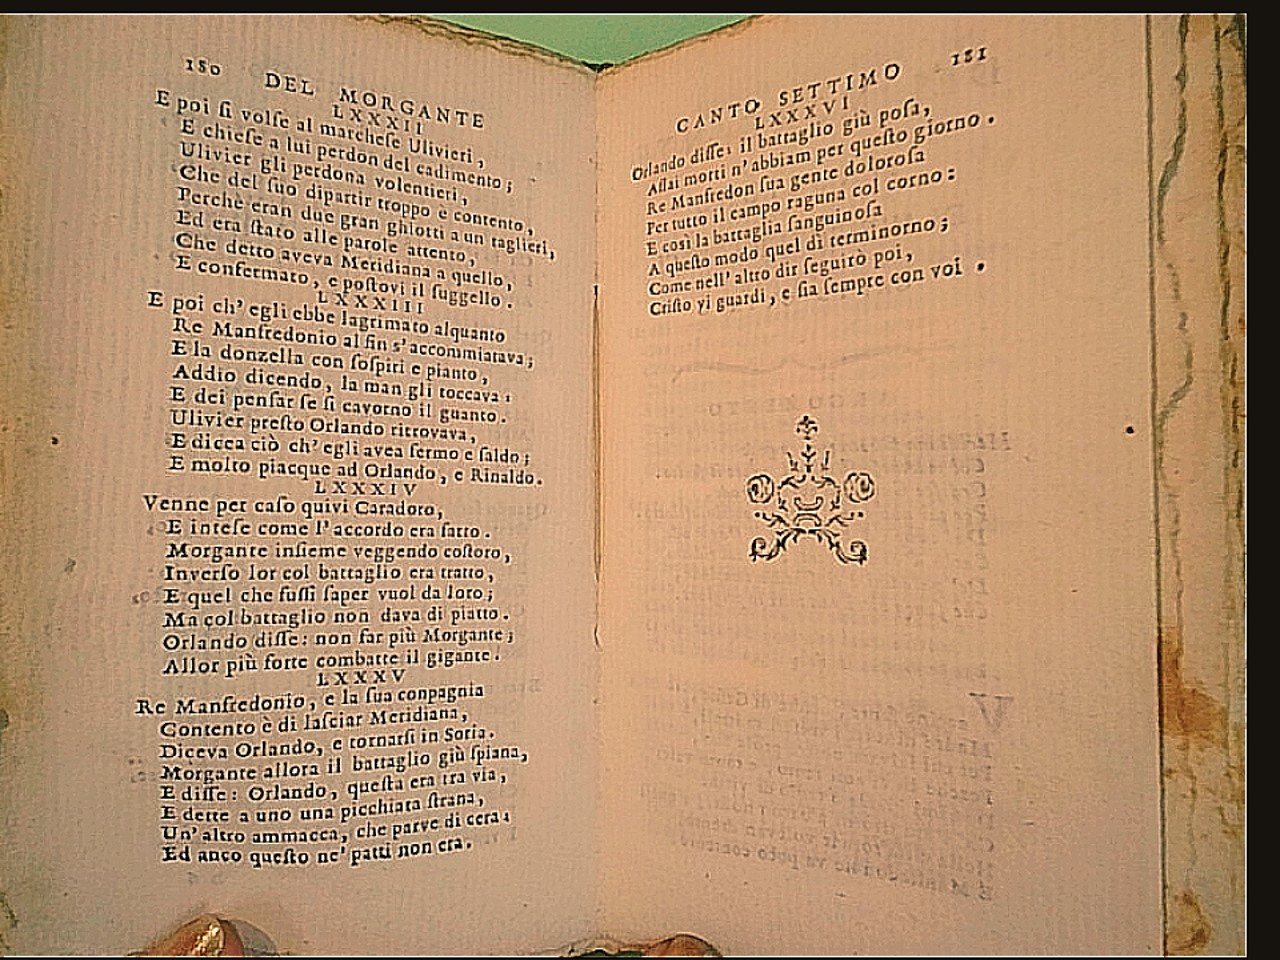 180 DEL MORGANTE
LXXXII
E poi ſi volſe al marcheſe Ulivieri,
E chieſe a lui perdon del cadimento;
Ulivier gli perdona volentieri,
Che del ſuo dipartir troppo e contento,
Perchè eran due gran ghiotti a un taglieri,
Ed era ſtato alle parole attento,
Che detto aveva Meridiana a quello,
E confermato, e poſtovi il ſuggello.
LXXXIII
E poi ch' egli ebbe lagrimato alquanto
Re Manfredonio al fin s'accommiatava;
E la donzella con ſoſpiri e pianto,
Addio dicendo, la man gli toccava:
E dei penſar ſe ſi cavorno il guanto.
Ulivier preſto Orlando ritrovava,
E dicea ciò ch' egli avea fermo e ſaldo;
E molto piacque ad Orlando, e Rinaldo.
LXXXIV
Venne per caſo quivi Caradoro,
E inteſe come l' accordo era fatto.
Morgante inſieme veggendo coſtoro,
Inverſo lor col battaglio era tratto,
E quel che fuſſi ſaper vuol da loro;
Ma col battaglio non dava di piatto.
Orlando diſſe: non far più Morgante;
Allor più forte combatte il gigante.
LXXXV
Re Manfredonio, e la ſua conpagnia
Contento è di laſciar Meridiana,
Diceva Orlando, e tornarſi in Soria.
Morgante allora il battaglio giù ſpiana,
E diſſe: Orlando, queſta era tra via,
E dette a uno una picchiata ſtrana,
Un' altro ammacca, che parve di cera:
Ed anco queſto ne' patti non era.
CANTO SETTIMO 181
LXXXVI
Orlando diſſe: il battaglio giù poſa,
Aſſai morti n' abbiam per queſto giorno.
Re Manfredon ſua gente doloroſa
Per tutto il campo raguna col corno:
E così la battaglia ſanguinoſa
A queſto modo quel dì terminorno;
Come nell' altro dir ſeguirò poi,
Criſto vi guardi, e ſia ſempre con voi.